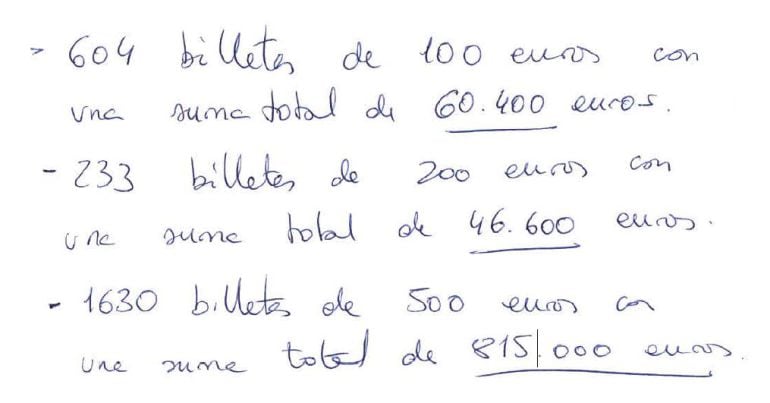 - 604 billetes de 100 euros con
una suma total de 60.400 euros.
- 233 billetes de 200 euros con
una suma total de 46.600 euros.
- 1630 billetes de 500 euros con
una suma total de 815.000 euros.